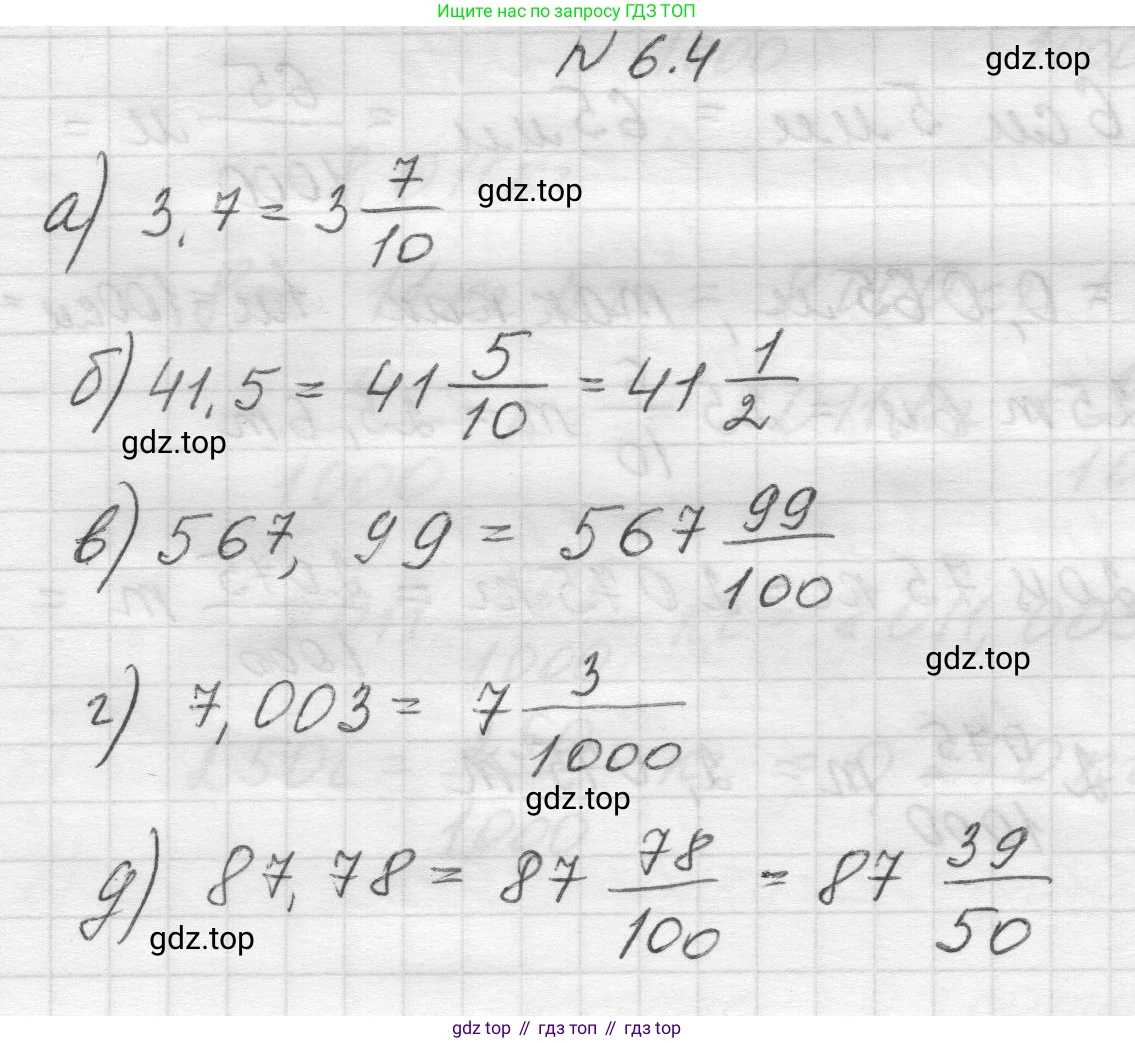 Ищите нас по запросу ГДЗ ТОП
N 6.4
gdz.top
а) 3,7 = 3 7/10
gdz.top
б) 41,5 = 41 5/10 = 41 1/2
gdz.top
в) 567,99 = 567 99/100
г) 7,003 = 7 3/1000
gdz.top
gdz.top
д) 87,78 = 87 78/100 = 87 39/50
gdz.top
gdz top // гдз топ // гдз top